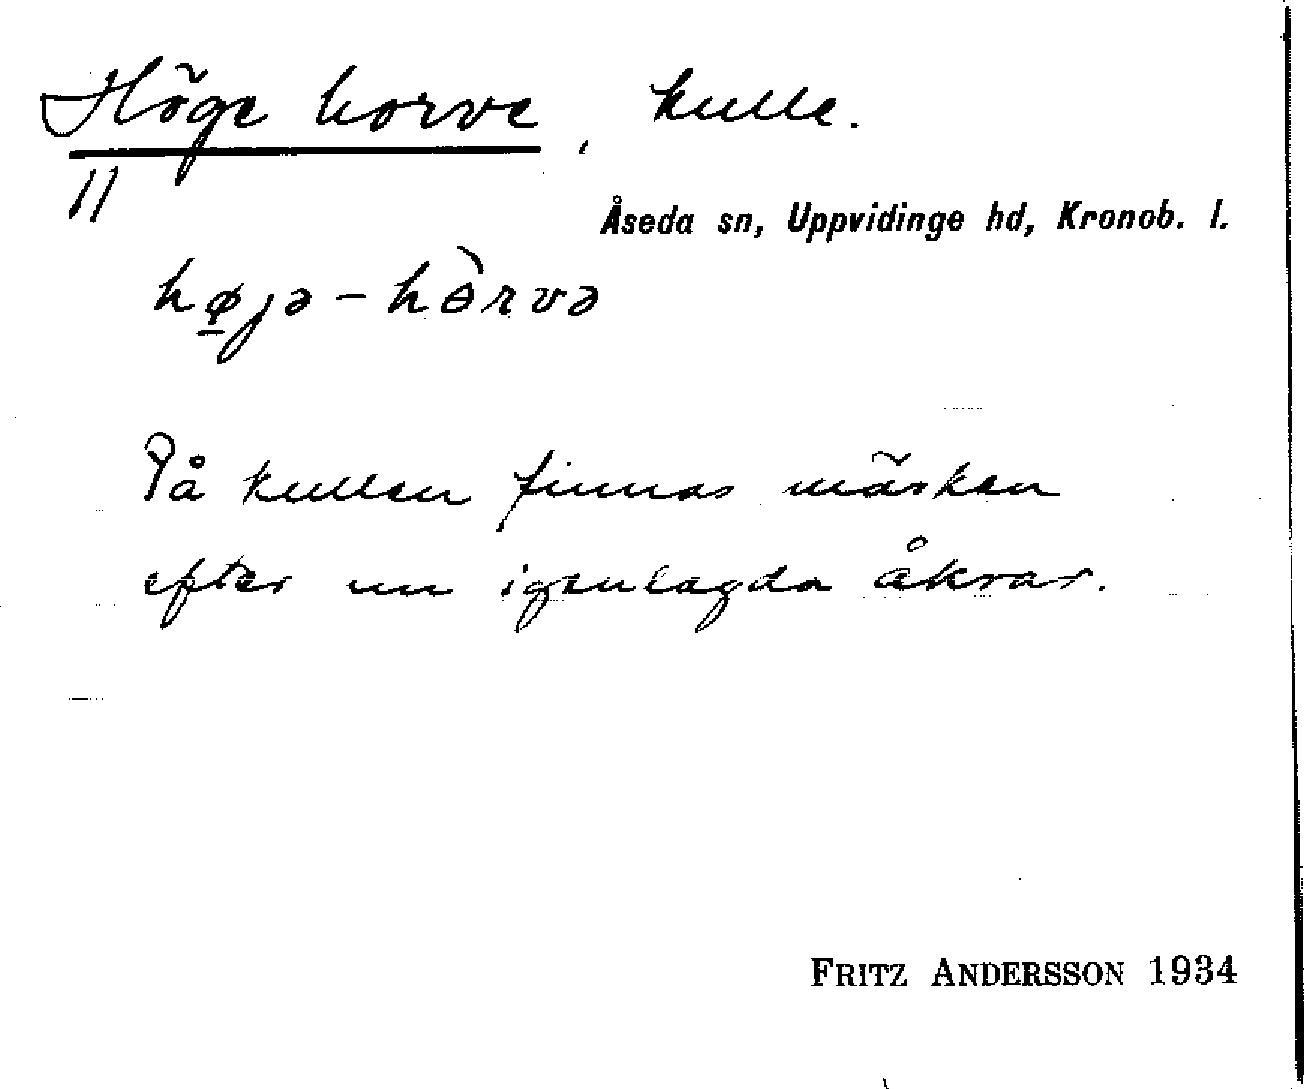 Höge horve, kulle.
11
Åseda sn, Uppvidinge hd, Kronob. l.
hø̱jə - hɵ̀rvə
På kullen finnas märken
efter nu igenlagda åkrar.
FRITZ ANDERSSON 1934